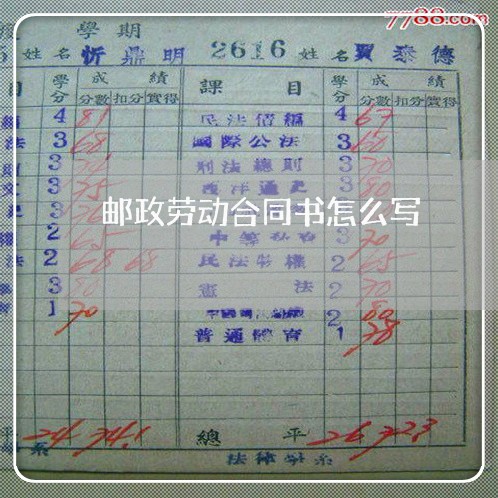 7788.com
學期
姓名 忻鼎明 2616 姓名 賈泰德
目 學分 成績 課目 學分 成績
分數 扣分 實得 分數 扣分 實得
4 81 民法債編 4 67
法 3 68 國際公法 3 60
3 刑法總則 3 70
文 3 75 西洋通史 3 80
邮政劳动合同书怎么写
2 65 3 70
法 2 68 68 民法物權 2 65
3 80 憲法 2 70
1 70 2 80
普通體育 1 78
平 24 74.1 總平 26 72.3
系 法律學系